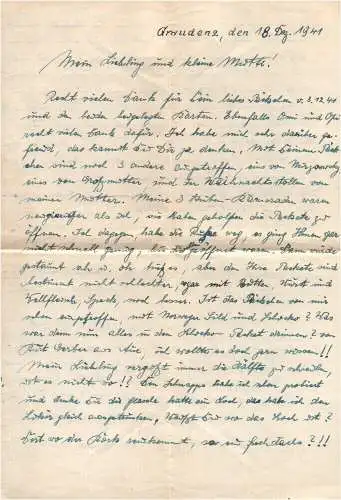 Graudenz, den 18. Dez. 1941
Mein Liebling und kleine Mutti!
Recht vielen Dank für Dein liebes Päckchen v. 3.12.41
und die beiden beigelegten Karten. Ebenfalls Omi und Opi
recht vielen Dank dafür. Ich habe mich sehr darüber ge-
freut, das kannst Du Dir ja denken. Mit Deinem Päck-
chen sind noch 3 andere eingetroffen, eins von
eins von Großmutter, und der Weihnachtsstollen von
meiner Mutter. Meine 3 Stuben Kameraden waren
neugieriger als ich, sie haben geholfen die Packete zu
öffnen. Ich dagegen, habe die Ruhe weg, es ging Ihnen gar
nicht schnell genug, bis geöffnet waren. Dann wurde
getauscht, aber den Ihre Packete sind
bestimmt nicht schlechter, war mit Butter, Wurst und
Speck, noch besser. Ist das Päckchen von mir
schon eingetroffen, mit Norweger Bild und Schoko? Was
war denn nun alles in dem Schoko Packet drinnen? von
aus Aue, ich wollte es doch gern wissen!!
Mein Liebling vergißt immer die Hälfte zu schreiben,
ist es nicht so!? Den Schnapps habe ich schon probiert
und denke Dir die Flasche hatte ein Loch, das habe ich den
gleich ausgetrunken, Weißt Du wo das Loch ist?
Dort wo der Kork reinkommt, so ein!!!